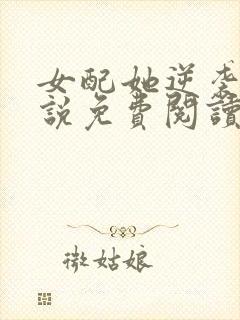 女配她逆袭
說免費閱讀
微姑娘